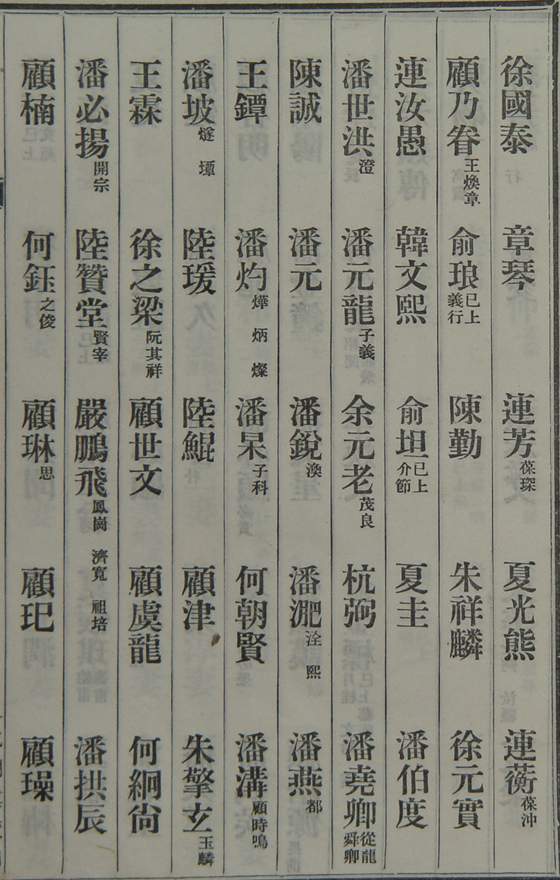 徐國泰 章琴 連芳葆琛 夏光熊 連蘅葆沖
顧乃眷王煥章 俞琅已上義行 陳勤 朱祥麟 徐元實
連汝愚 韓文熙 俞坦已上介節 夏圭 潘伯度
潘世洪澄 潘元龍子義 余元老茂良 杭弼 潘堯卿從龍舜卿
陳誠 潘元 潘銳渙 潘淝淦 熙 潘燕都
王鐔 潘灼燁 炳 燦 潘杲子科 何朝賢 潘溝顧時鳴
潘坡燧 墰 陸瑗 陸鯤 顧津 朱擎玄玉麟
王霖 徐之梁阮其祥 顧世文 顧虞龍 何絅尙
潘必揚開宗 陸贊堂賢宰 嚴鵬飛鳳岡 濟寬 祖培 潘拱辰
顧楠 何鈺之俊 顧琳思 顧玘 顧璪